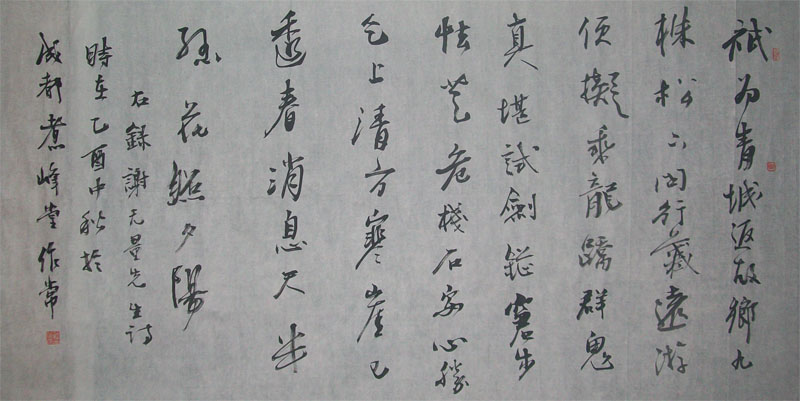 祇为青城返故鄉九
株松下问行藏遠游
便擬乘龍蹻群鬼
真堪試劍鋩窘步
怯登危棧石安心勝
乞上清方寒崖已
透春消息
花照夕陽
右録謝无量先生詩
時在乙酉中秋於
成都煮峰堂作常